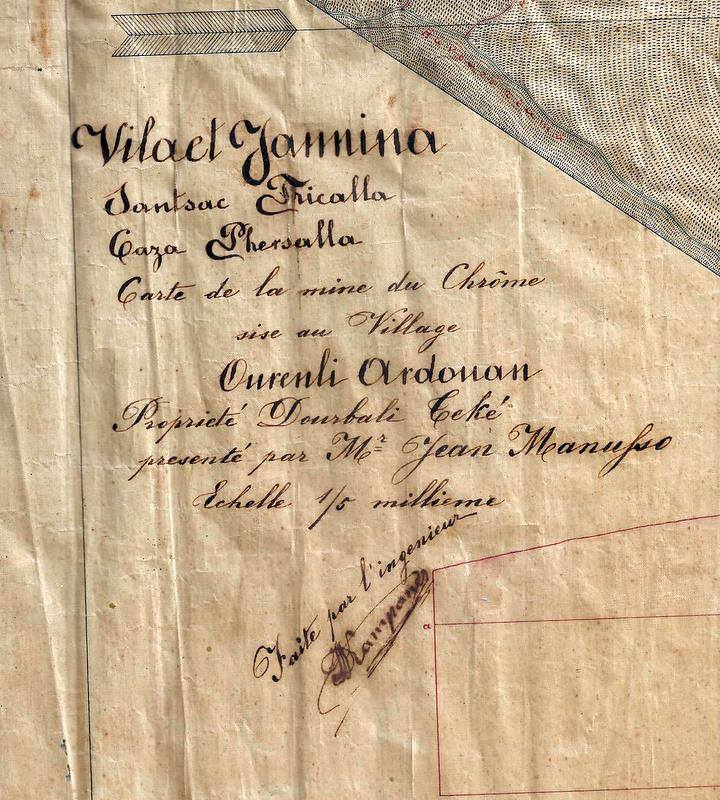 Vilaet Jannina
Santsac Tricalla
Caza Phersalla
Carte de la mine du Chrôme
sise au Village
Ourenli Ardouan
Proprieté Dourbali Teké
presenté par Mr Jean Manusso
Echelle 1/5 millieme
Faite par l'ingenieur
a